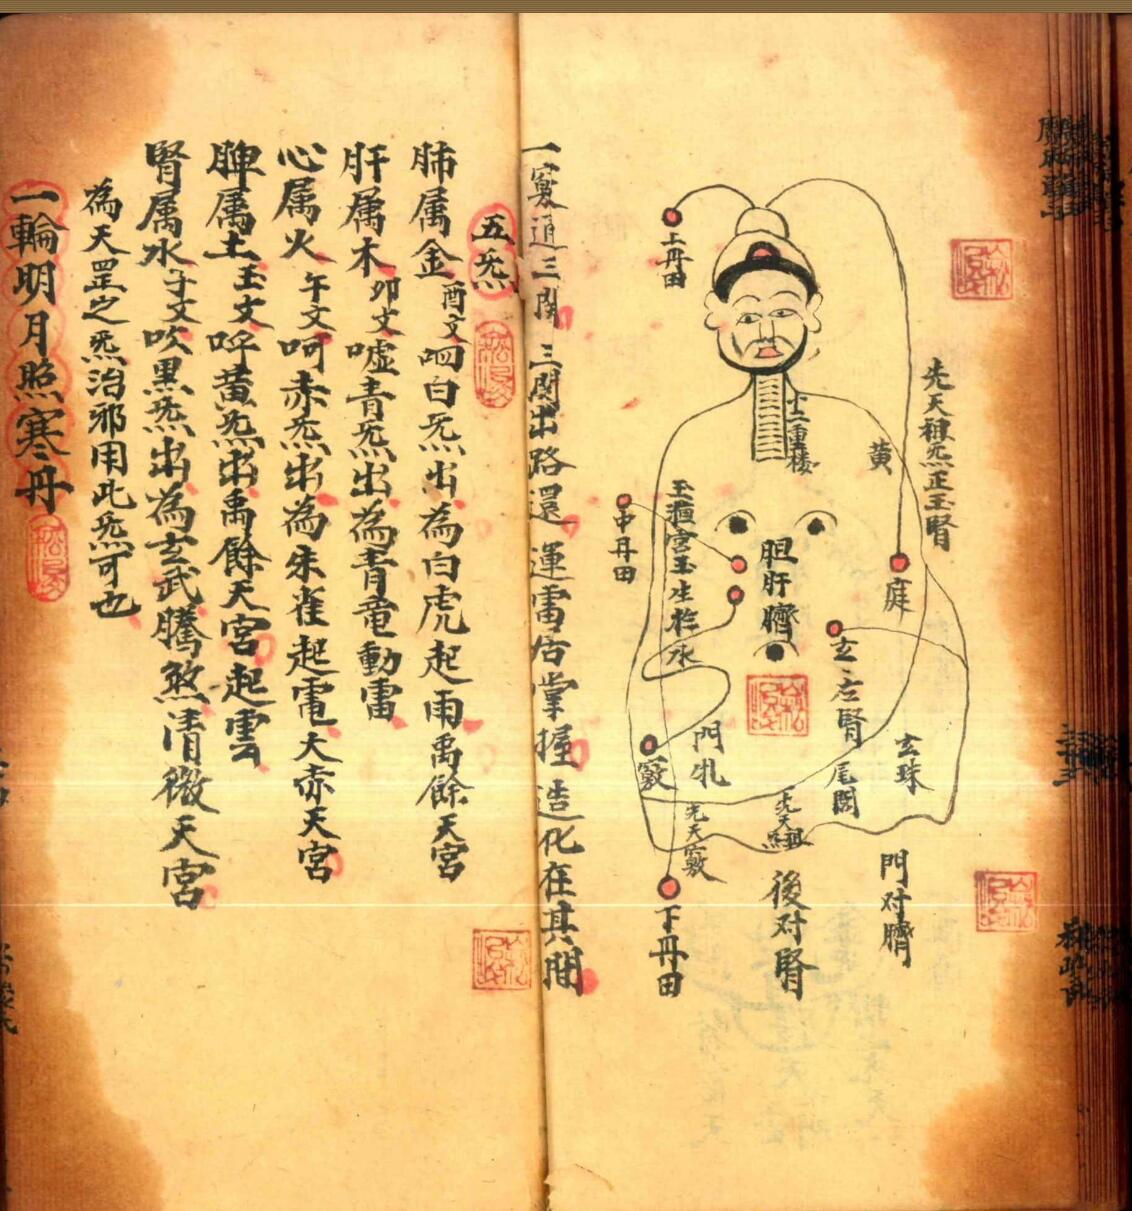 先天祖炁正玉腎
黄
庭
上丹田
十二重楼
中丹田
玉
宮玉生於水
胆
肝
臍
玄
左腎
尾閭
玄珠
門
牝
竅
先天竅
先天
下丹田
後对腎
門对臍
一竅通三関
三関出路還
運雷霆掌握
造化在其間
五炁
肺属金酉文呬白炁出為白虎起雨禹餘天宮
肝属木卯文嘘青炁出為青竜動雷
心属火午文呵赤炁出為朱雀起電大赤天宮
脾属土玉文呼黄炁出禹餘天宮起雲
腎属水子文吹黒炁出為玄武騰煞清微天宮
為天罡之炁治邪用此炁可也
一輪明月照寒丹